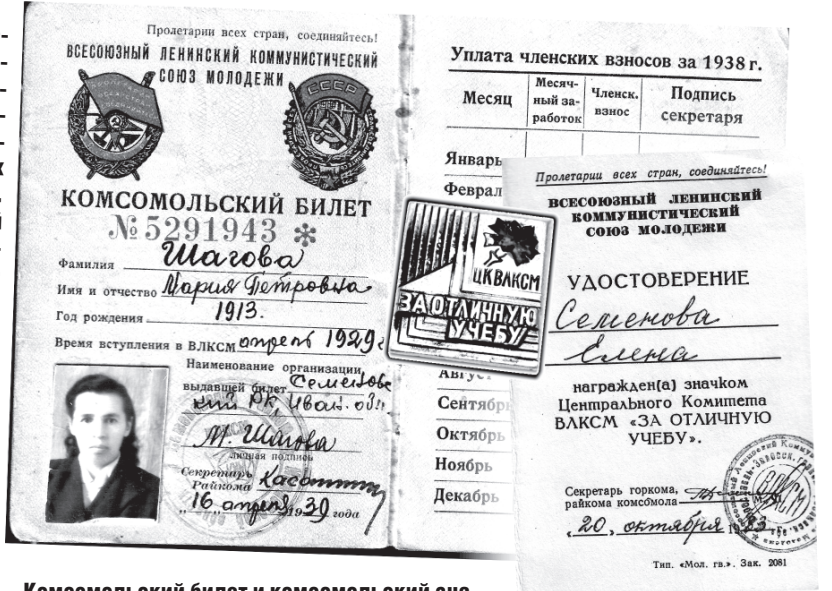 Пролетарии всех стран, соединяйтесь!
ВСЕСОЮЗНЫЙ ЛЕНИНСКИЙ КОММУНИСТИЧЕСКИЙ
СОЮЗ МОЛОДЕЖИ
СССР
КОМСОМОЛЬСКИЙ БИЛЕТ
№ 5291943 *
Фамилия Шагова
Имя и отчество Мария Петровна
Год рождения 1913.
Время вступления в ВЛКСМ апрель 1929 г
Наименование организации,
выдавшей билет Семеновс
кий РК, Иван. обл
М. Шагова
личная подпись
Секретарь
Райкома
"16" апреля 1939 года
Уплата членских взносов за 1938 г.
Месяц
Месяч-
ный за-
работок
Членск.
взнос
Подпись
секретаря
Январь
Феврал
Август
Сентябрь
Октябрь
Ноябрь
Декабрь
ЦК ВЛКСМ
ЗА ОТЛИЧНУЮ
УЧЕБУ
Пролетарии всех стран, соединяйтесь!
ВСЕСОЮЗНЫЙ ЛЕНИНСКИЙ
КОММУНИСТИЧЕСКИЙ
СОЮЗ МОЛОДЕЖИ
УДОСТОВЕРЕНИЕ
Семенова
Елена
награжден(а) значком
Центрального Комитета
ВЛКСМ «ЗА ОТЛИЧНУЮ
УЧЕБУ».
Секретарь горкома,
райкома комсомола
«20» октября 1983
ВЛКСМ
Тип. «Мол. гв.». Зак. 2081
Комсомольский билет и комсомольский зна-